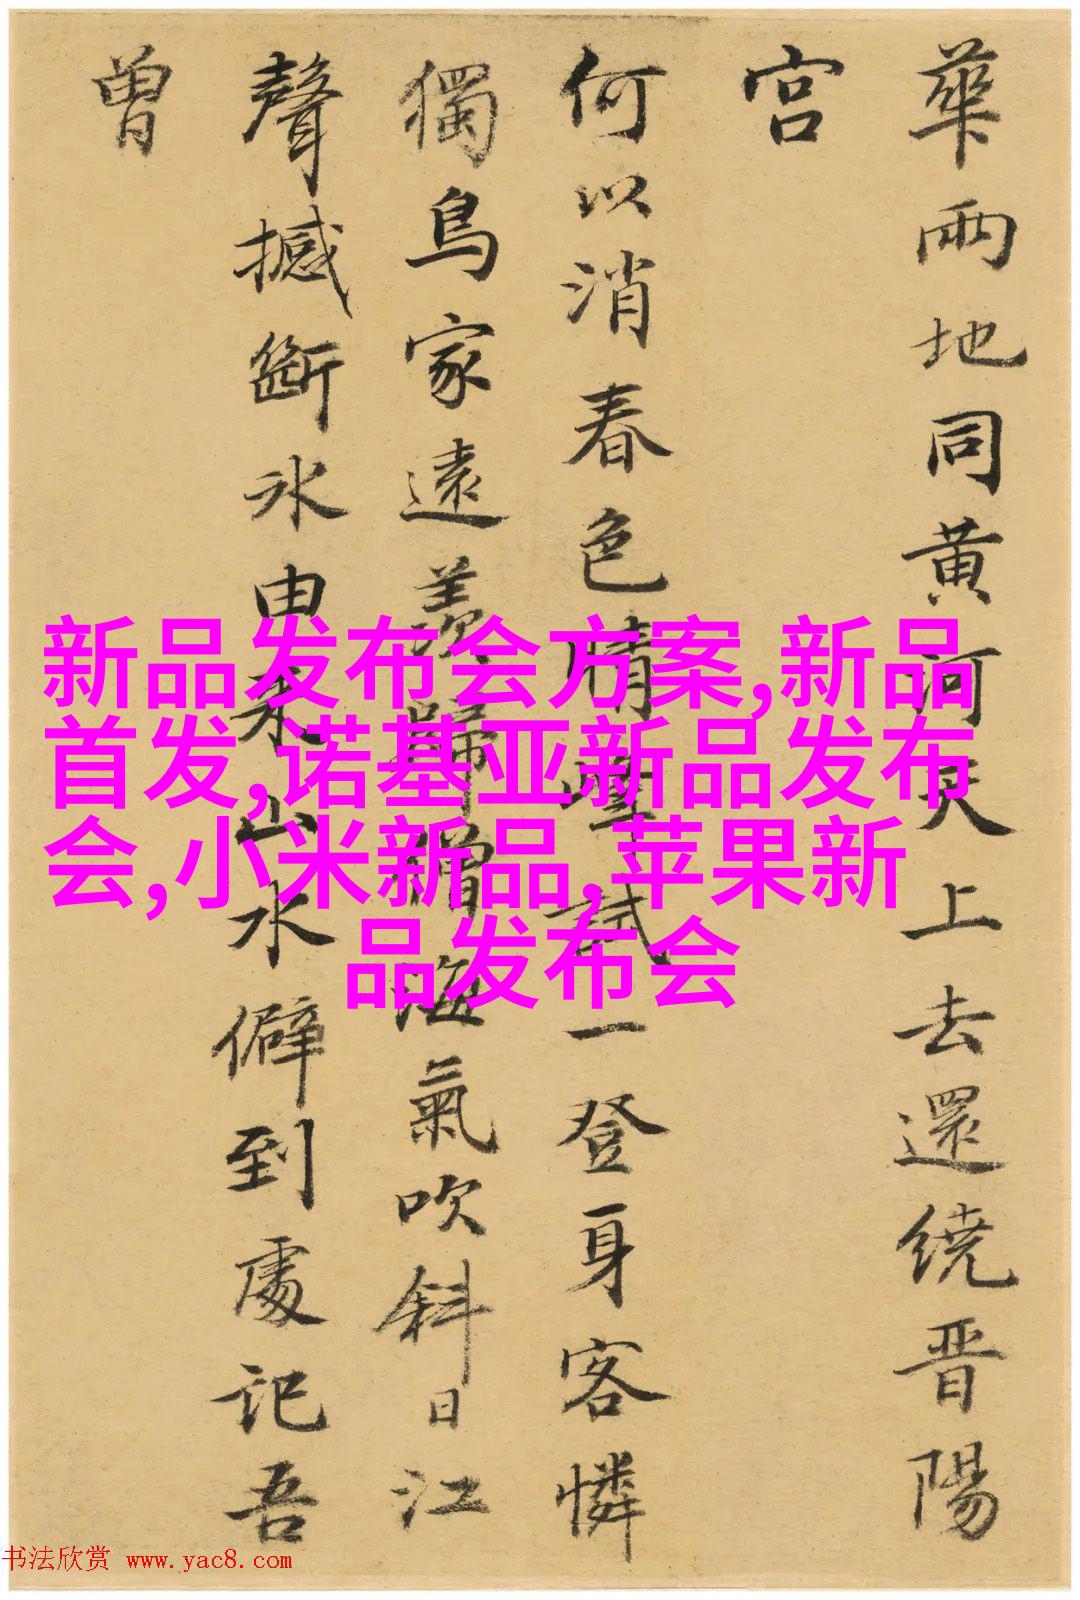 華兩地同黄河天上去還繞晋陽
宫
何以消春色晴峰試一登身客憐
獨鳥家遠羨歸僧海氣吹斜日江
聲撼斷冰由來山水僻到處記吾
曾
新品发布会方案,新品
首发,诺基亚新品发布
会,小米新品,苹果新
品发布会
书法欣赏 www.yac8.com